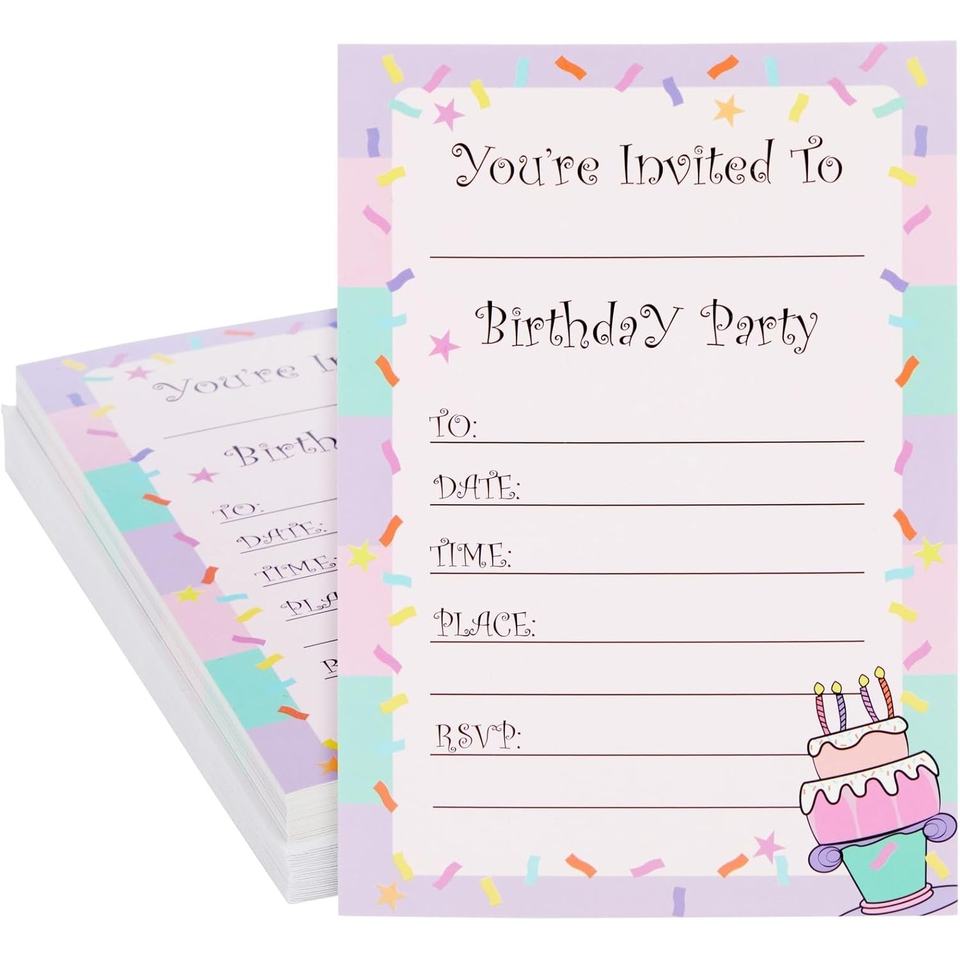 You're Invited To
Birthday Party
TO:
DATE:
TIME:
PLACE:
RSVP:
You're In
Birth
TO:
DATE:
TIME:
PLA
R